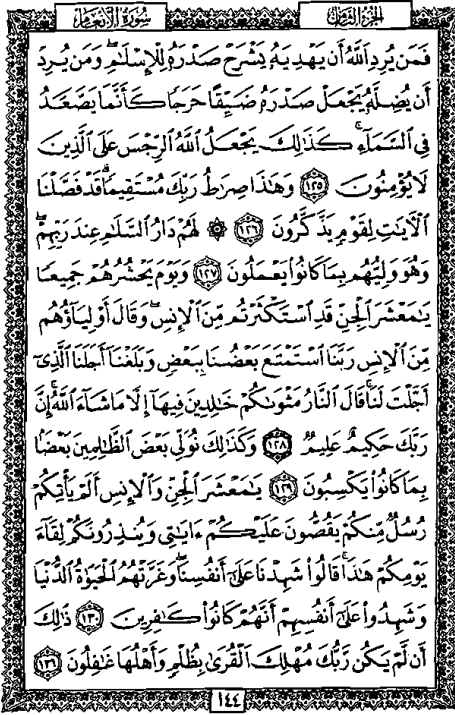 سُورَةُ الْأَنْعَامِ الجُزْءُ الثَّامِنُ
فَمَن يُرِدِ اللَّهُ أَن يَهْدِيَهُ يَشْرَحْ صَدْرَهُ لِلْإِسْلَامِ ۖ وَمَن يُرِدْ
أَن يُضِلَّهُ يَجْعَلْ صَدْرَهُ ضَيِّقًا حَرَجًا كَأَنَّمَا يَصَّعَّدُ
فِي السَّمَاءِ ۚ كَذَٰلِكَ يَجْعَلُ اللَّهُ الرِّجْسَ عَلَى الَّذِينَ
لَا يُؤْمِنُونَ ١٢٥ وَهَٰذَا صِرَاطُ رَبِّكَ مُسْتَقِيمًا ۗ قَدْ فَصَّلْنَا
الْآيَاتِ لِقَوْمٍ يَذَّكَّرُونَ ١٢٦ ۞ لَهُمْ دَارُ السَّلَامِ عِندَ رَبِّهِمْ ۖ
وَهُوَ وَلِيُّهُم بِمَا كَانُوا يَعْمَلُونَ ١٢٧ وَيَوْمَ يَحْشُرُهُمْ جَمِيعًا
يَا مَعْشَرَ الْجِنِّ قَدِ اسْتَكْثَرْتُم مِّنَ الْإِنسِ ۖ وَقَالَ أَوْلِيَاؤُهُم
مِّنَ الْإِنسِ رَبَّنَا اسْتَمْتَعَ بَعْضُنَا بِبَعْضٍ وَبَلَغْنَا أَجَلَنَا الَّذِي
أَجَّلْتَ لَنَا ۚ قَالَ النَّارُ مَثْوَاكُمْ خَالِدِينَ فِيهَا إِلَّا مَا شَاءَ اللَّهُ ۗ إِنَّ
رَبَّكَ حَكِيمٌ عَلِيمٌ ١٢٨ وَكَذَٰلِكَ نُوَلِّي بَعْضَ الظَّالِمِينَ بَعْضًا
بِمَا كَانُوا يَكْسِبُونَ ١٢٩ يَا مَعْشَرَ الْجِنِّ وَالْإِنسِ أَلَمْ يَأْتِكُمْ
رُسُلٌ مِّنكُمْ يَقُصُّونَ عَلَيْكُمْ آيَاتِي وَيُنذِرُونَكُمْ لِقَاءَ
يَوْمِكُمْ هَٰذَا ۚ قَالُوا شَهِدْنَا عَلَىٰ أَنفُسِنَا ۖ وَغَرَّتْهُمُ الْحَيَاةُ الدُّنْيَا
وَشَهِدُوا عَلَىٰ أَنفُسِهِمْ أَنَّهُمْ كَانُوا كَافِرِينَ ١٣٠ ذَٰلِكَ
أَن لَّمْ يَكُن رَّبُّكَ مُهْلِكَ الْقُرَىٰ بِظُلْمٍ وَأَهْلُهَا غَافِلُونَ ١٣١
١٤٤